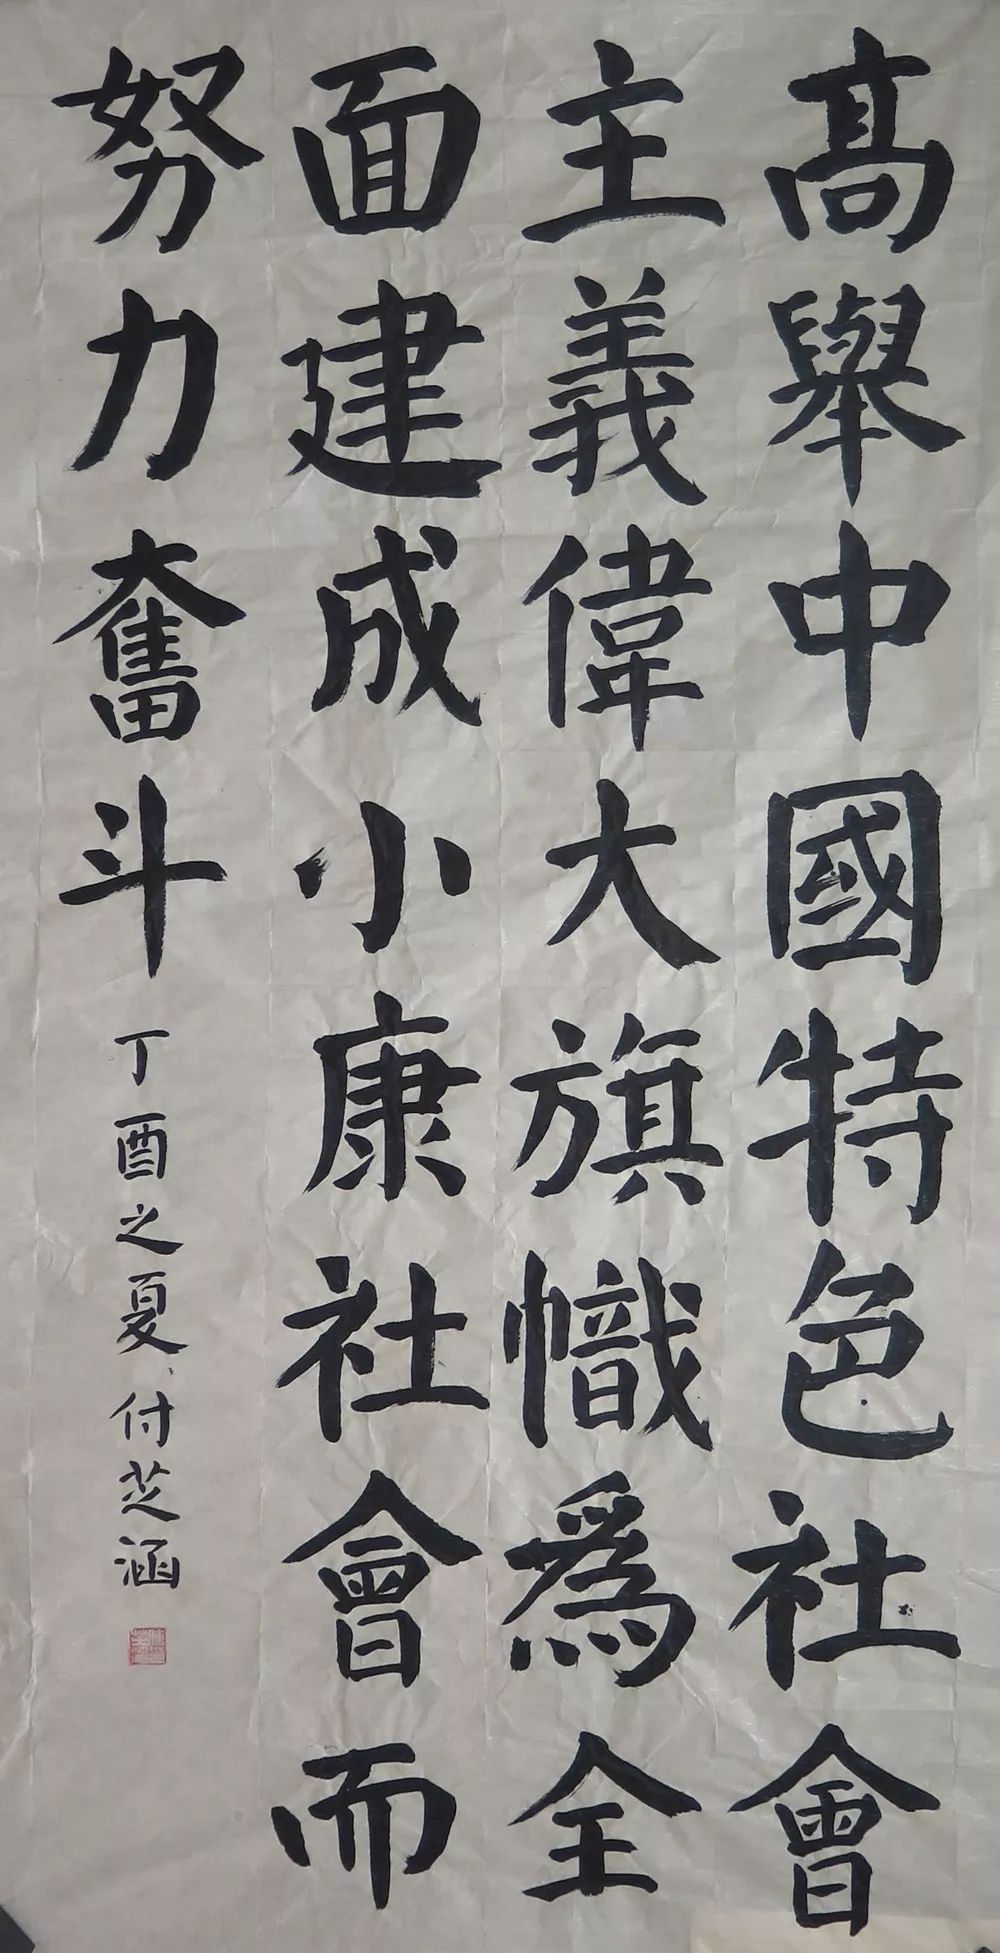 高舉中國特色社會
主義偉大旗幟爲全
面建成小康社會而
努力奮斗
丁酉之夏付芝涵